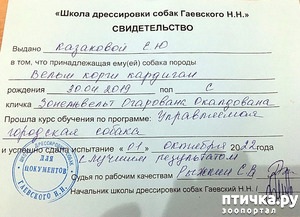 «Школа дрессировки собак Гаевского Н.Н.»
СВИДЕТЕЛЬСТВО
Выдано Казаковой Е Ю
в том, что принадлежащая ему(ей) собака породы
Вельш корги кардиган
рождения 20.04 2019 пол С
кличка Зоненвельт Очарована Околдована
Прошла курс обучения по программе: Управляемая
городская собака
и успешно сдала испытание "01" октября 2022 года
с лучшим результатом
ДЛЯ
ДОКУМЕНТОВ
Судья по рабочим качествам Рыжкин С.В.
Начальник школы дрессировки собак Гаевский Н.Н.
птичка.ру
зоопортал